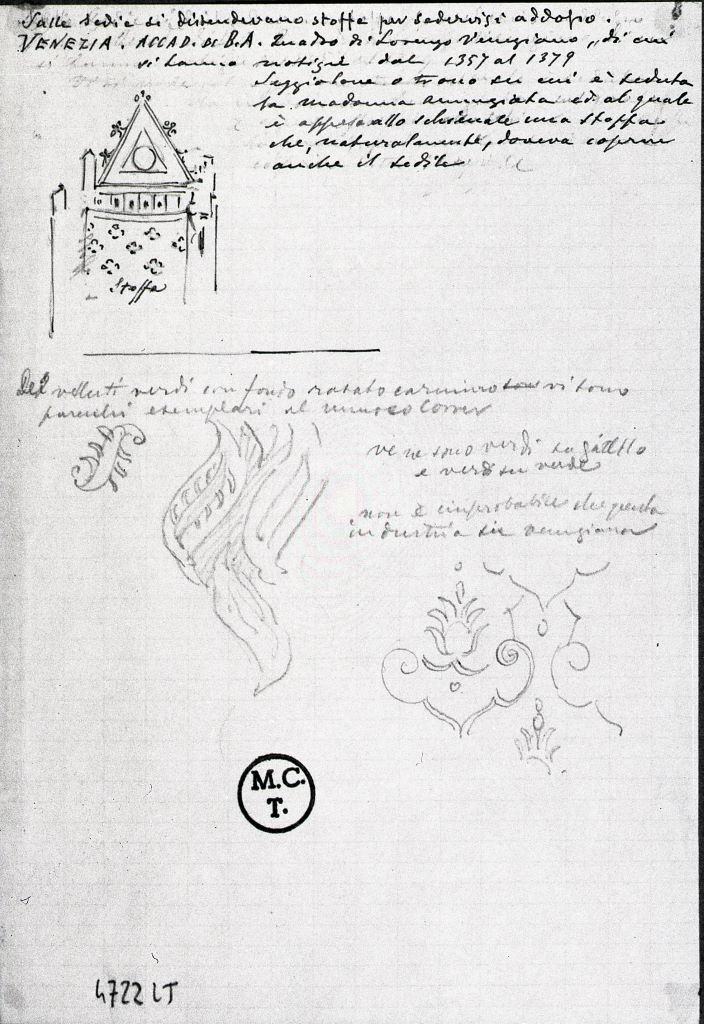 Sulle sedie si distendevano stoffe per sedervisi addosso.
VENEZIA. ACCAD. di B.A. Quadro di Lorenzo Veneziano, di cui
si hanno notizie dal 1357 al 1379
Seggiolone o trono su cui è seduta
la madonna annunziata ed al quale
è appesa allo schienale una stoffa
che, naturalmente, doveva coprire
anche il sedile
Stoffa
Dei velluti verdi con fondo rasato carmino vi sono
parecchi esemplari al museo Correr
ve ne sono verdi su giallo
e verdi su verde
non è improbabile che questa
industria sia veneziana
M.C.
T.
4722 LT